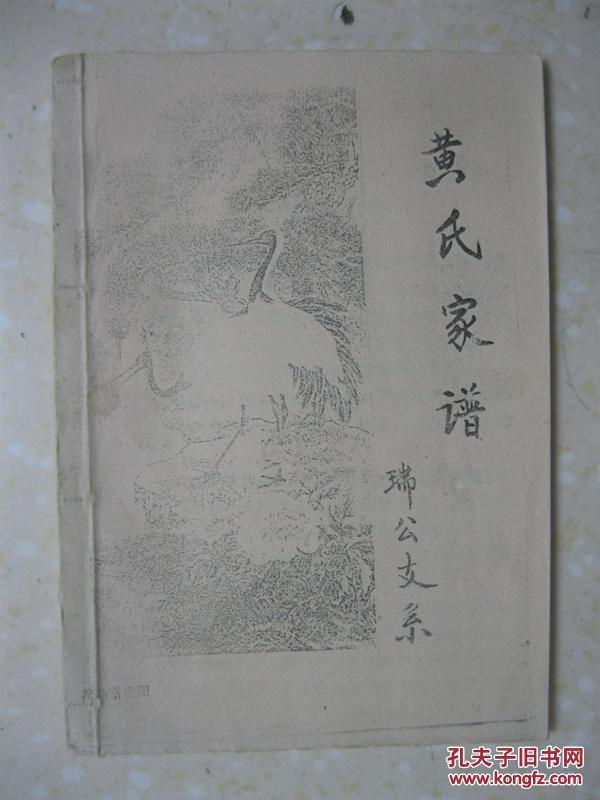 黄氏家谱
瑞公支系
孔夫子旧书网
www.kongfz.com